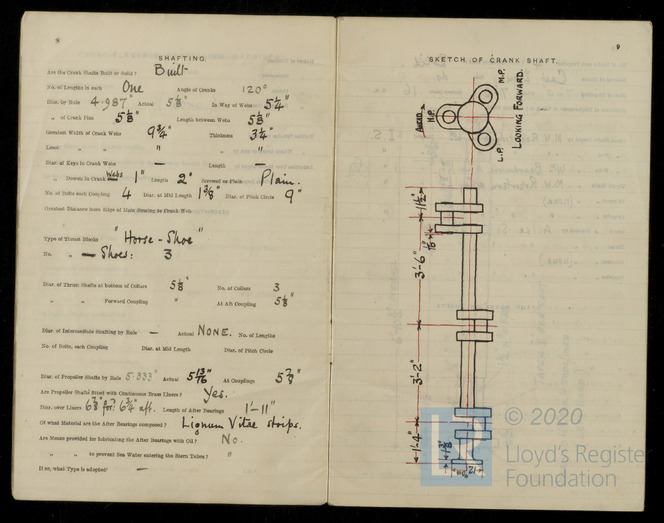 8
SHAFTING.
Are the Crank Shafts Built or Solid? Built
No. of Lengths in each One Angle of Cranks 120°
Diar. by Rule 4.987" Actual 5 1/8" In Way of Webs 5 1/4"
" of Crank Pins 5 1/8" Length between Webs 5 5/8"
Greatest Width of Crank Webs 9 3/4" Thickness 3 1/4"
Least " " " "
Diar. of Keys in Crank Webs — Length —
" Dowels in Crank Webs 1" Length 2" Screwed or Plain Plain.
No. of Bolts each Coupling 4 Diar. at Mid Length 1 3/8" Diar. of Pitch Circle 9"
Greatest Distance from Edge of Main Bearing to Crank Web
Type of Thrust Blocks "Horse-Shoe"
No. " Shoes: 3
Diar. of Thrust Shafts at bottom of Collars 5 1/8" No. of Collars 3
" " Forward Coupling " At Aft Coupling 5 1/8"
Diar. of Intermediate Shafting by Rule — Actual NONE. No. of Lengths
No. of Bolts, each Coupling Diar. at Mid Length Diar. of Pitch Circle
Diar. of Propeller Shafts by Rule 5.333" Actual 5 13/16" At Couplings 5 7/8"
Are Propeller Shafts fitted with Continuous Brass Liners? Yes.
Diar. over Liners 6 7/8" for: 6 3/4" aft. Length of After Bearings 1'-11"
Of what Material are the After Bearings composed? Lignum Vitae strips.
Are Means provided for lubricating the After Bearings with Oil? No.
" " to prevent Sea Water entering the Stern Tubes? "
If so, what Type is adopted? —
9
SKETCH OF CRANK SHAFT.
M.P.
H.P.
L.P.
LOOKING FORWARD.
1 1/2"
3'-6"
3'-2"
1'-4"
© 2020
Lloyd's Register
Foundation